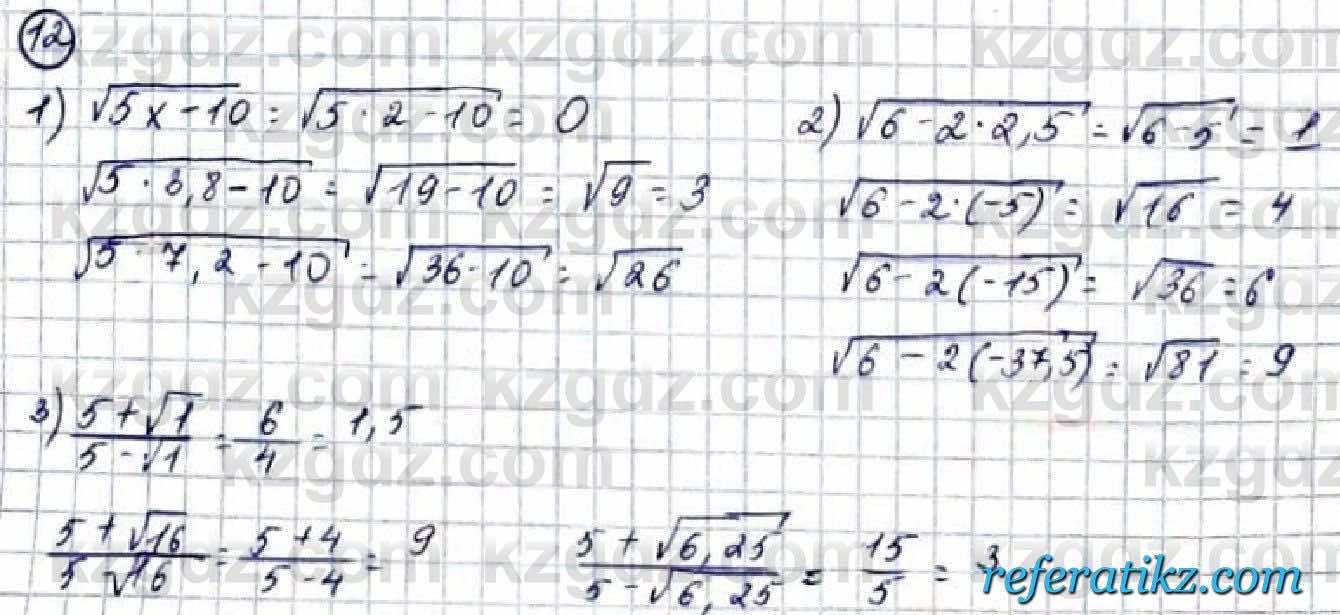 12
1) √(5x-10) = √(5·2-10) = 0
√(5·3,8-10) = √(19-10) = √9 = 3
√(5·7,2-10) = √(36-10) = √26
2) √(6-2·2,5) = √(6-5) = 1
√(6-2·(-5)) = √16 = 4
√(6-2(-15)) = √36 = 6
√(6-2(-37,5)) = √81 = 9
3) (5+√1)/(5-√1) = 6/4 = 1,5
(5+√16)/(5-√16) = (5+4)/(5-4) = 9
(5+√6,25)/(5-√6,25) = 15/5 = 3
kzgdz.com
referatikz.com